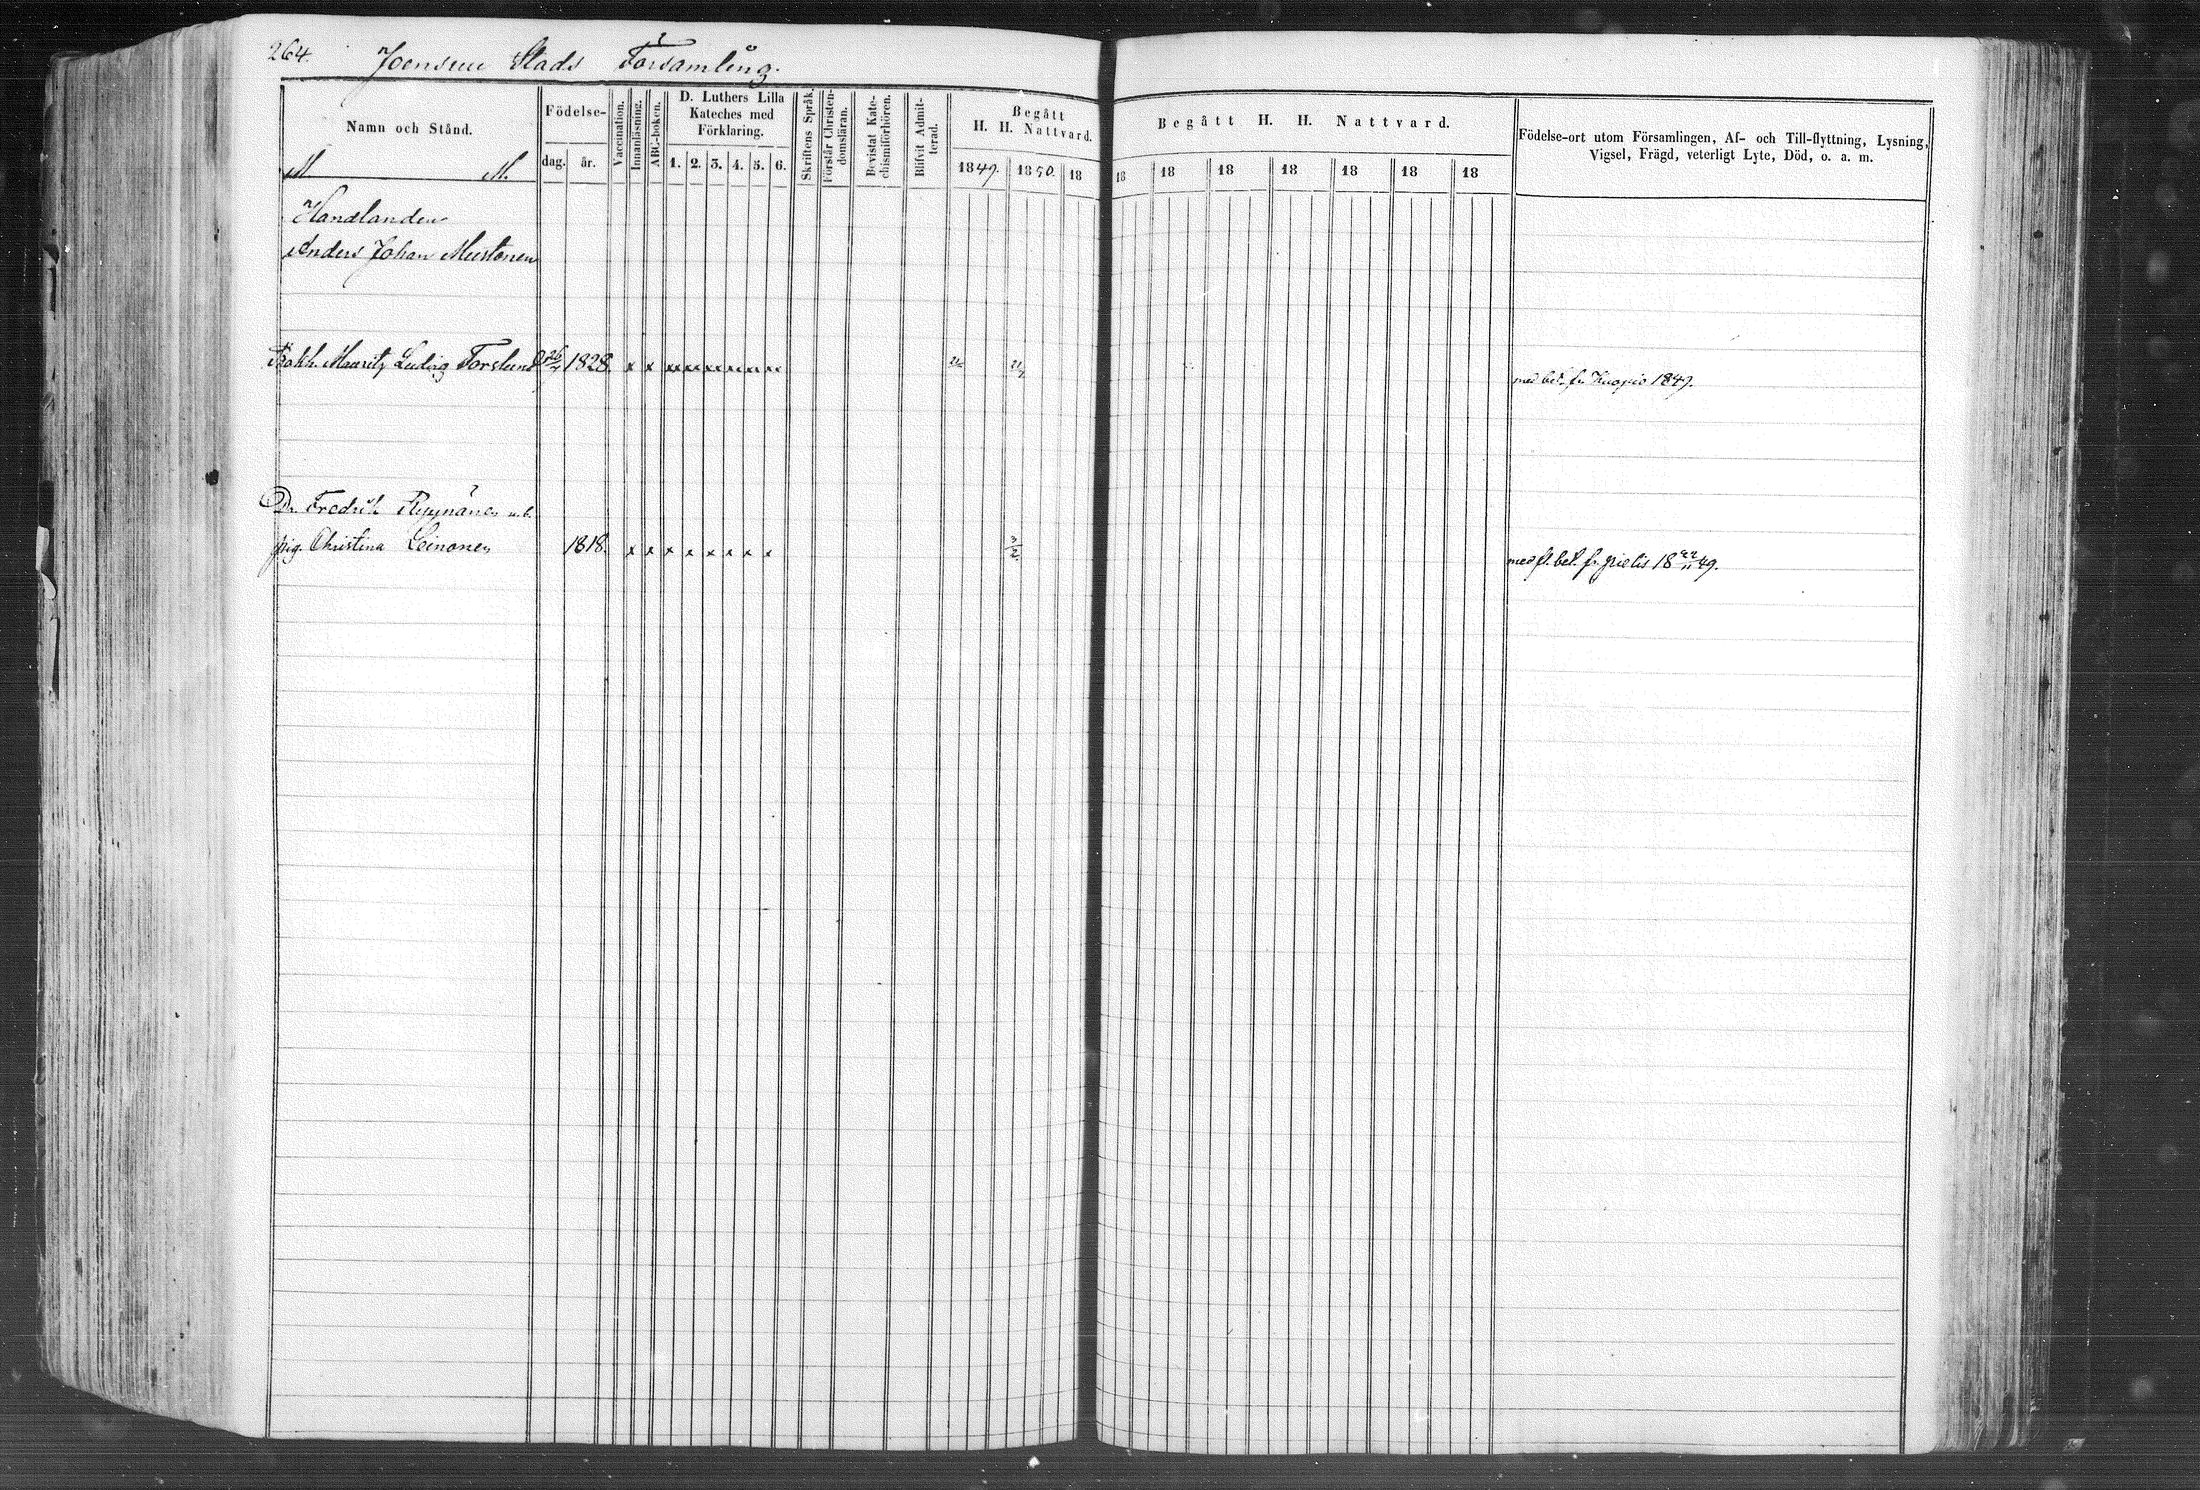 264. Joensuu Stads Församling.
Namn och Stånd.
M. M.
Födelse-
dag. år.
Vaccination.
Innanläsning.
ABC-boken.
D. Luthers Lilla
Kateches med
Förklaring.
1. 2. 3. 4. 5. 6.
Skriftens Språk.
Förstår Christen-
domsläran.
Bevistat Kate-
chismiförhören.
Blifvit Admit-
terad.
Begått
H. H. Nattvard.
1849. 1850. 18
Begått H. H. Nattvard.
18 18 18 18 18 18 18
Födelse-ort utom Församlingen, Af- och Till-flyttning, Lysning,
Vigsel, Frägd, veterligt Lyte, Död, o. a. m.
Handlanden
Anders Johan Mustonen
Bokh. Mauritz Ludvig Forslund 1828. x x x x x x x x x x x x x x
med bet. fr. Kuopio 1849.
Dr. Fredrik Ryynänen
pig. Christina Leinonen 1818. x x x x x x x x
med fl. bet. fr. pielis 18 22/11 49.